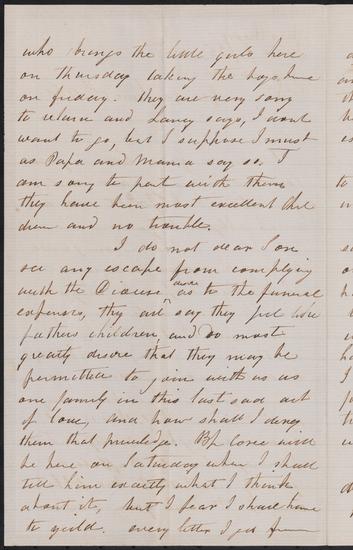 who brings the little girls here
on Thursday taking the boys home
on friday. They are very sorry
to return and Laney says, I dont
want to go, but I suppose I must
as Papa and Mama say so. I
am sorry to part with them
they have been most excellent chil
dren and no trouble.
I do not dear Son
see any escape from complying
with the Diocese desire as to the funeral
expenses, they all say they feel like
fathers children, and do most
greatly desire that they may be
permitted to join with us as
one family in this last sad act
of love, and how shall I deny
them that privilege. Bp Coxe will
be here on Saturday when I shall
tell him exactly what I think
about it, but I fear I shall have
to yield. every letter I get from